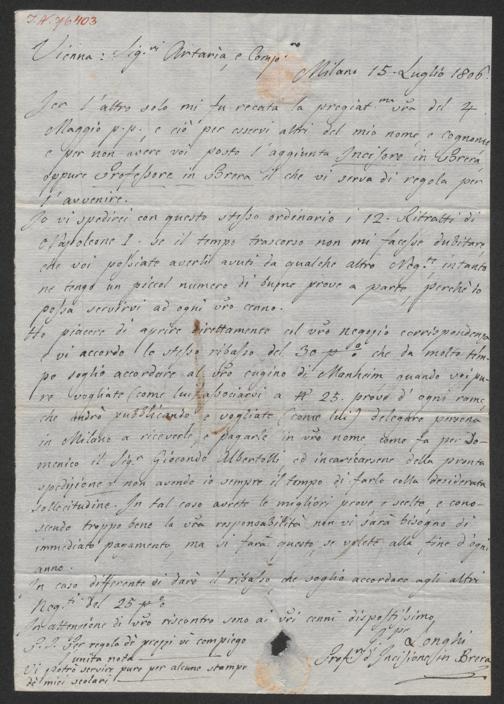 I.N. 76403
Vienna: Sig.ri Artaria, e Comp.no
Milano 15. Luglio 1806.
Jer l'altro solo mi fu recata la pregiat.ma vra del 4
Maggio p.p., e ciò per esservi altri del mio nome, e cognome
e per non avere voi posto l'aggiunta Incisore in Brera,
oppure Professore in Brera il che vi serva di regola per
l'avvenire.
Io vi spedirei con questo stesso ordinario i 12. Ritratti di
Napoleone I. se il tempo trascorso non mi facesse dubitare,
che voi possiate averli avuti da qualche altro Neg.te intanto
ne tengo un piccol numero di buone prove a parte perchè io
possa servirvi ad ogni vro cenno.
Ho piacere di aprire direttamente col vro negozio corrispondenza
e vi accordo lo stesso ribasso del 30 p% che da molto tem-
po soglio accordare al vro cugino di Manheim quando voi pu-
re vogliate (come lui) associarvi a n° 25. prove d'ogni rame,
che andrò pubblicando e vogliate (come lui) delegare persona
in Milano a riceverle, e pagarle in vro nome come fa per Do-
menico il Sig.r Giocondo Albertolli ed incaricarsene della pronta
spedizione, non avendo io sempre il tempo di farlo colla desiderata
sollecitudine. In tal caso avrete le migliori prove e scelte, e cono-
scendo troppo bene la vra responsabilità non vi sarà bisogno di
immediato pagamento, ma si farà questo, se volete alla fine d'ogni
anno.
In caso differente vi darò il ribasso che soglio accordare agli altri
Neg.ti del 25 p%
In attenzione di vro riscontro sono ai vri cenni dispostissimo
P.S. Per regola di prezzi vi compiego
unita nota
Gius.e Longhi
Vi potrò servire pure per alcune stampe
de' miei scolari
Prof.re d'Incisione in Brera